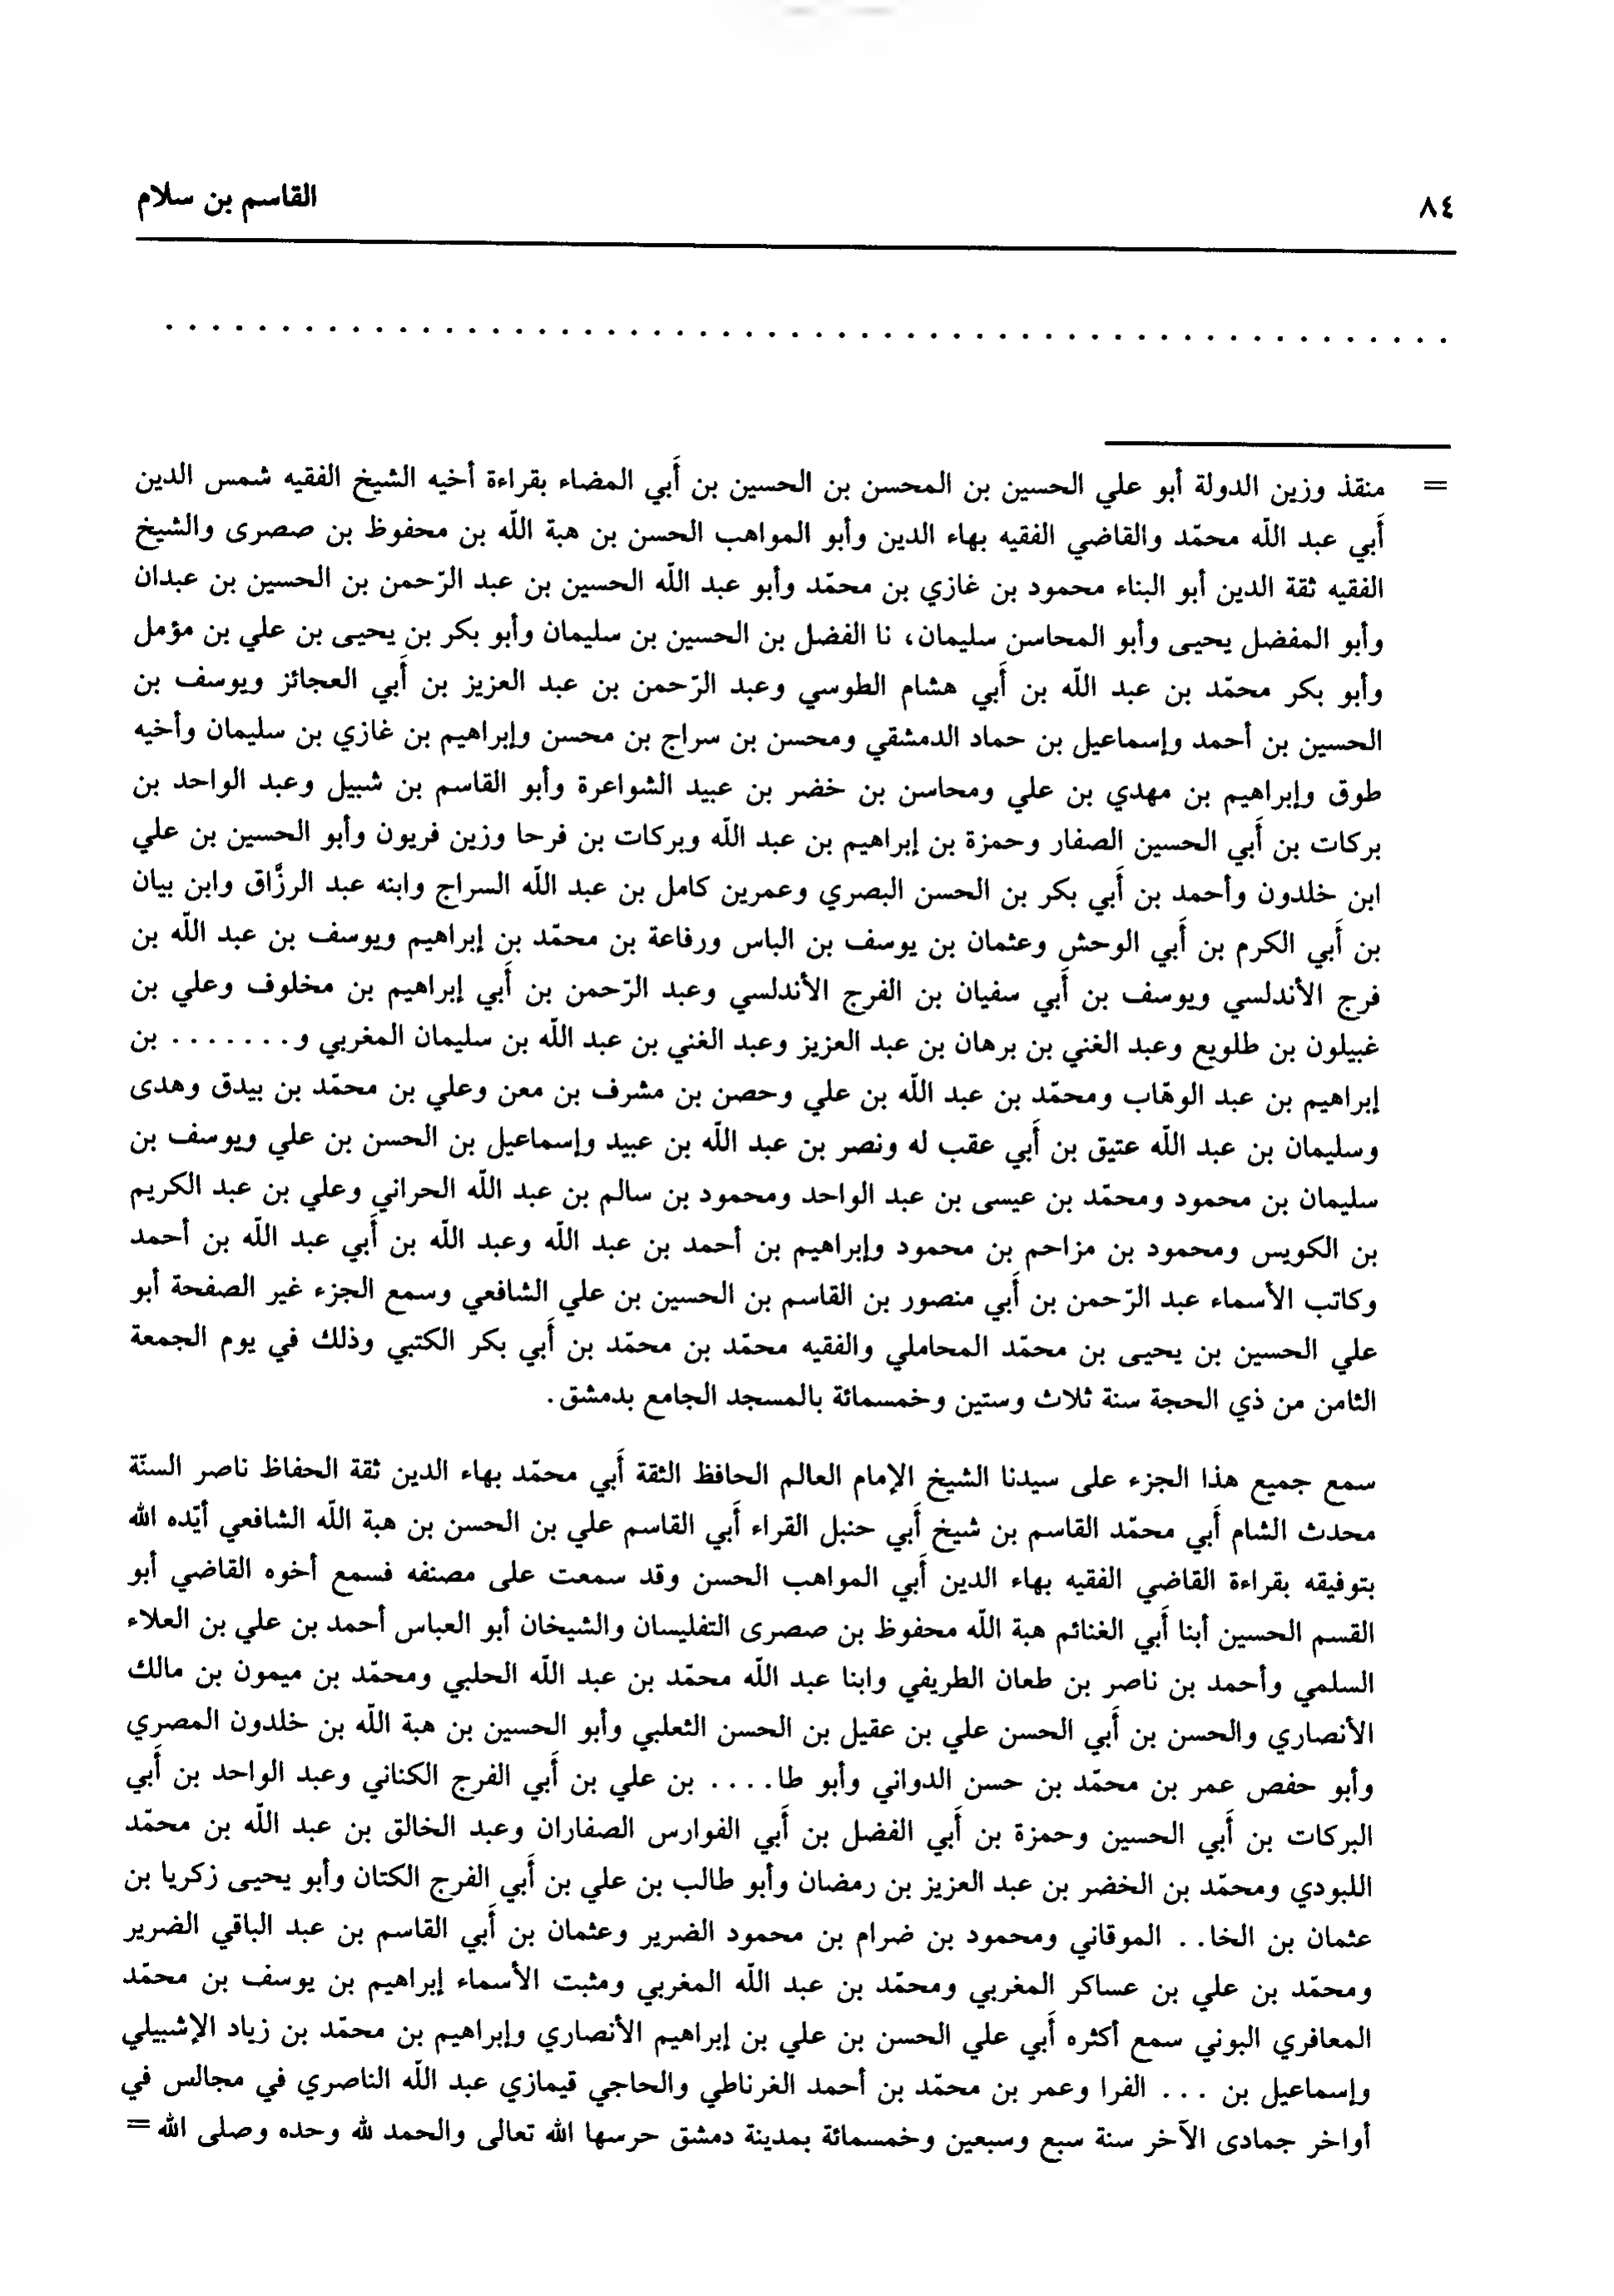 ٨٤
القاسم بن سلام
. . . . . . . . . . . . . . . . . . . . . . . . . . . . . . . . . . . . . . . . . . . . . . . . . . . . . . . .
= منقذ وزين الدولة أبو علي الحسين بن المحسن بن الحسين بن أَبي المضاء بقراءة أخيه الشيخ الفقيه شمس الدين
أَبي عبد اللّه محمّد والقاضي الفقيه بهاء الدين وأبو المواهب الحسن بن هبة اللّه بن محفوظ بن صصرى والشيخ
الفقيه ثقة الدين أبو البناء محمود بن غازي بن محمّد وأبو عبد اللّه الحسين بن عبد الرّحمن بن الحسين بن عبدان
وأبو المفضل يحيى وأبو المحاسن سليمان، نا الفضل بن الحسين بن سليمان وأبو بكر بن يحيى بن علي بن مؤمل
وأبو بكر محمّد بن عبد اللّه بن أَبي هشام الطوسي وعبد الرّحمن بن عبد العزيز بن أَبي العجائز ويوسف بن
الحسين بن أحمد وإسماعيل بن حماد الدمشقي ومحسن بن سراج بن محسن وإبراهيم بن غازي بن سليمان وأخيه
طوق وإبراهيم بن مهدي بن علي ومحاسن بن خضر بن عبيد الشواعرة وأبو القاسم بن شبيل وعبد الواحد بن
بركات بن أَبي الحسين الصفار وحمزة بن إبراهيم بن عبد اللّه وبركات بن فرحا وزين فريون وأبو الحسين بن علي
ابن خلدون وأحمد بن أَبي بكر بن الحسن البصري وعمرين كامل بن عبد اللّه السراج وابنه عبد الرزَّاق وابن بيان
بن أَبي الكرم بن أَبي الوحش وعثمان بن يوسف بن الباس ورفاعة بن محمّد بن إبراهيم ويوسف بن عبد اللّه بن
فرج الأندلسي ويوسف بن أَبي سفيان بن الفرج الأندلسي وعبد الرّحمن بن أَبي إبراهيم بن مخلوف وعلي بن
غبيلون بن طلويع وعبد الغني بن برهان بن عبد العزيز وعبد الغني بن عبد اللّه بن سليمان المغربي و....... بن
إبراهيم بن عبد الوهّاب ومحمّد بن عبد اللّه بن علي وحصن بن مشرف بن معن وعلي بن محمّد بن بيدق وهدى
وسليمان بن عبد اللّه عتيق بن أَبي عقب له ونصر بن عبد اللّه بن عبيد وإسماعيل بن الحسن بن علي ويوسف بن
سليمان بن محمود ومحمّد بن عيسى بن عبد الواحد ومحمود بن سالم بن عبد اللّه الحراني وعلي بن عبد الكريم
بن الكويس ومحمود بن مزاحم بن محمود وإبراهيم بن أحمد بن عبد اللّه وعبد اللّه بن أَبي عبد اللّه بن أحمد
وكاتب الأسماء عبد الرّحمن بن أَبي منصور بن القاسم بن الحسين بن علي الشافعي وسمع الجزء غير الصفحة أبو
علي الحسين بن يحيى بن محمّد المحاملي والفقيه محمّد بن محمّد بن أَبي بكر الكتبي وذلك في يوم الجمعة
الثامن من ذي الحجة سنة ثلاث وستين وخمسمائة بالمسجد الجامع بدمشق.
سمع جميع هذا الجزء على سيدنا الشيخ الإمام العالم الحافظ الثقة أَبي محمّد بهاء الدين ثقة الحفاظ ناصر السنّة
محدث الشام أَبي محمّد القاسم بن شيخ أَبي حنبل القراء أَبي القاسم علي بن الحسن بن هبة اللّه الشافعي أيّده الله
بتوفيقه بقراءة القاضي الفقيه بهاء الدين أَبي المواهب الحسن وقد سمعت على مصنفه فسمع أخوه القاضي أبو
القسم الحسين أبنا أَبي الغنائم هبة اللّه محفوظ بن صصرى التفليسان والشيخان أبو العباس أحمد بن علي بن العلاء
السلمي وأحمد بن ناصر بن طعان الطريفي وابنا عبد اللّه محمّد بن عبد اللّه الحلبي ومحمّد بن ميمون بن مالك
الأنصاري والحسن بن أَبي الحسن علي بن عقيل بن الحسن الثعلبي وأبو الحسين بن هبة اللّه بن خلدون المصري
وأبو حفص عمر بن محمّد بن حسن الدواني وأبو طا.... بن علي بن أَبي الفرج الكناني وعبد الواحد بن أَبي
البركات بن أَبي الحسين وحمزة بن أَبي الفضل بن أَبي الفوارس الصفاران وعبد الخالق بن عبد اللّه بن محمّد
اللبودي ومحمّد بن الخضر بن عبد العزيز بن رمضان وأبو طالب بن علي بن أَبي الفرج الكتان وأبو يحيى زكريا بن
عثمان بن الخا.. الموقاني ومحمود بن ضرام بن محمود الضرير وعثمان بن أَبي القاسم بن عبد الباقي الضرير
ومحمّد بن علي بن عساكر المغربي ومحمّد بن عبد اللّه المغربي ومثبت الأسماء إبراهيم بن يوسف بن محمّد
المعافري البوني سمع أكثره أَبي علي الحسن بن علي بن إبراهيم الأنصاري وإبراهيم بن محمّد بن زياد الإشبيلي
وإسماعيل بن ... الفرا وعمر بن محمّد بن أحمد الغرناطي والحاجي قيمازي عبد اللّه الناصري في مجالس في
أواخر جمادى الآخر سنة سبع وسبعين وخمسمائة بمدينة دمشق حرسها الله تعالى والحمد لله وحده وصلى الله =